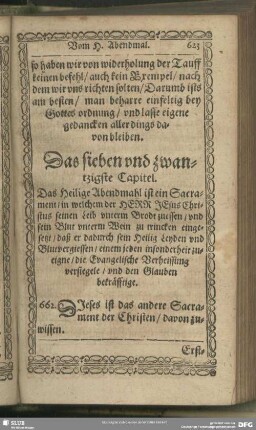 Vom H. Abendmal. 623
so haben wir von widerholung der Tauff
keinen befehl/ auch kein Exempel/ nach
dem wir vns richten solten/ Darumb ists
am besten/ man beharre einfeltig bey
Gottes ordnung/ vnd lasse eigene
gedancken aller dings da-
von bleiben.
Das sieben vnd zwan-
tzigste Capitel.
Das Heilige Abendmahl ist ein Sacra-
ment/ in welchem der HERR JEsus Chri-
stus seinen Leib vnterm Brodt zu essen/ vnd
sein Blut vnterm Wein zu trincken einge-
setzt/ daß er dadurch sein Heilig Leyden vnd
Blutvergiessen/ einem jeden insonderheit zu-
eigne/ die Evangelische Verheissung
versiegele/ vnd den Glauben
bekräfftige.
662. DJeses ist das andere Sacra-
ment der Christen/ davon zu-
wissen.
Erst-
SLUB
DFG